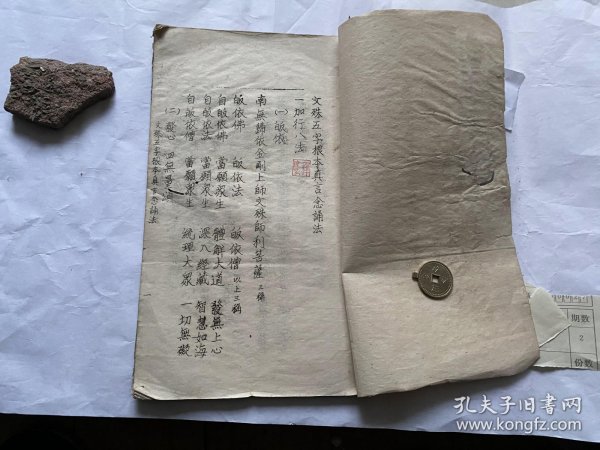 文殊五字根本真言念誦法
一加行八法
(一)皈依
南無皈依金剛上師文殊師利菩薩 三稱
皈依佛 皈依法 皈依僧 以上三稱
自皈依佛 當願眾生 體解大道 發無上心
自皈依法 當願眾生 深入經藏 智慧如海
自皈依僧 當願眾生 統理大眾 一切無礙
(二)發心 四無量
文殊五字根本真言念誦法
期数
2
份数
孔夫子旧书网
www.kongfz.com